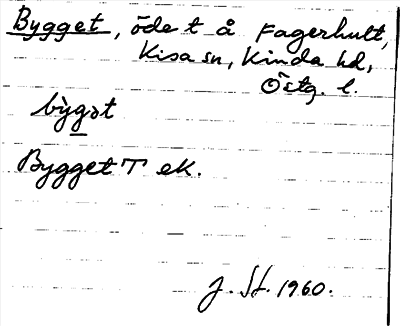 Bygget, öde t å Fagerhult,
Kisa sn, Kinda hd,
Östg. l.
bỳgət
Bygget T ek.
J. St. 1960.